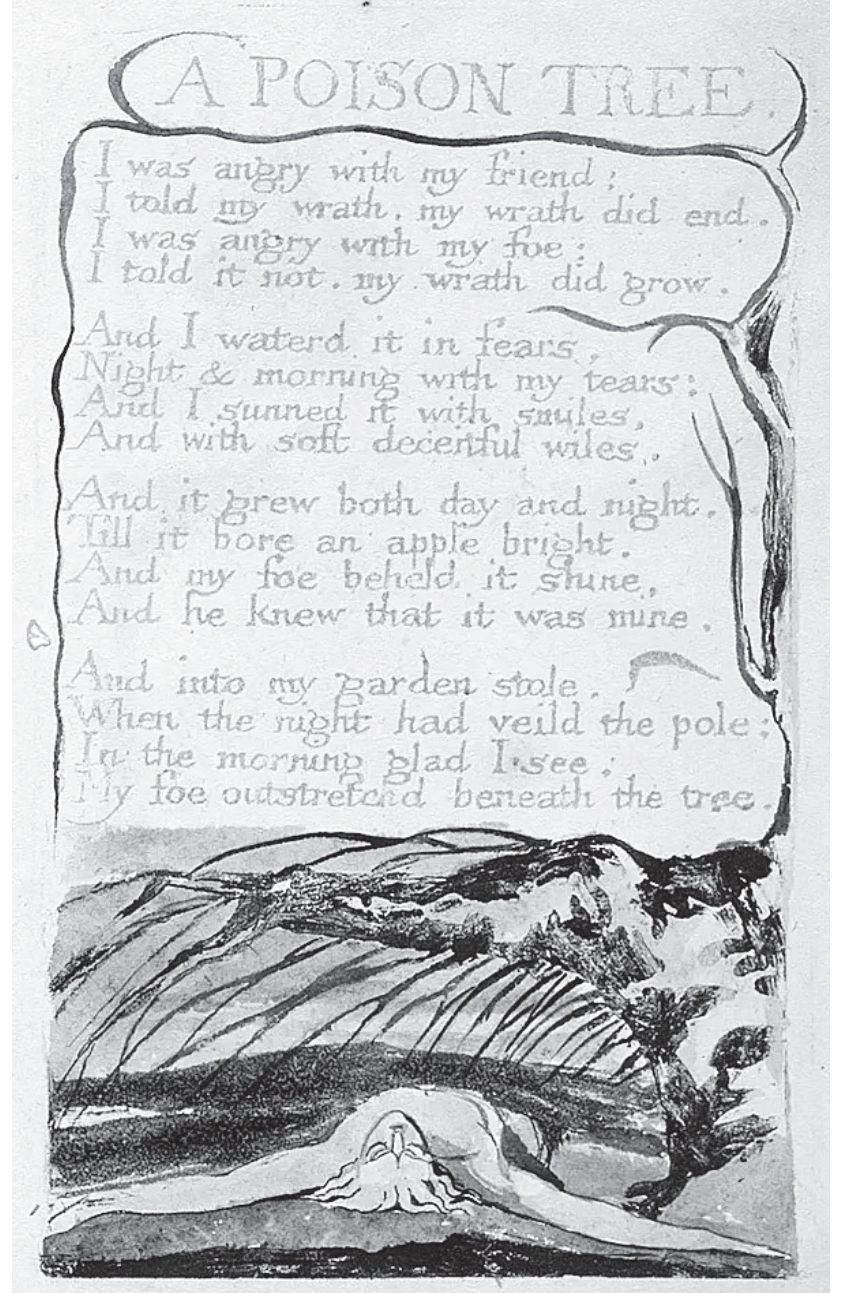 A POISON TREE.
I was angry with my friend;
I told my wrath, my wrath did end.
I was angry with my foe:
I told it not, my wrath did grow.
And I waterd it in fears,
Night & morning with my tears:
And I sunned it with smiles,
And with soft deceitful wiles.
And it grew both day and night.
Till it bore an apple bright.
And my foe beheld it shine,
And he knew that it was mine.
And into my garden stole.
When the night had veild the pole;
In the morning glad I see;
My foe outstretchd beneath the tree.